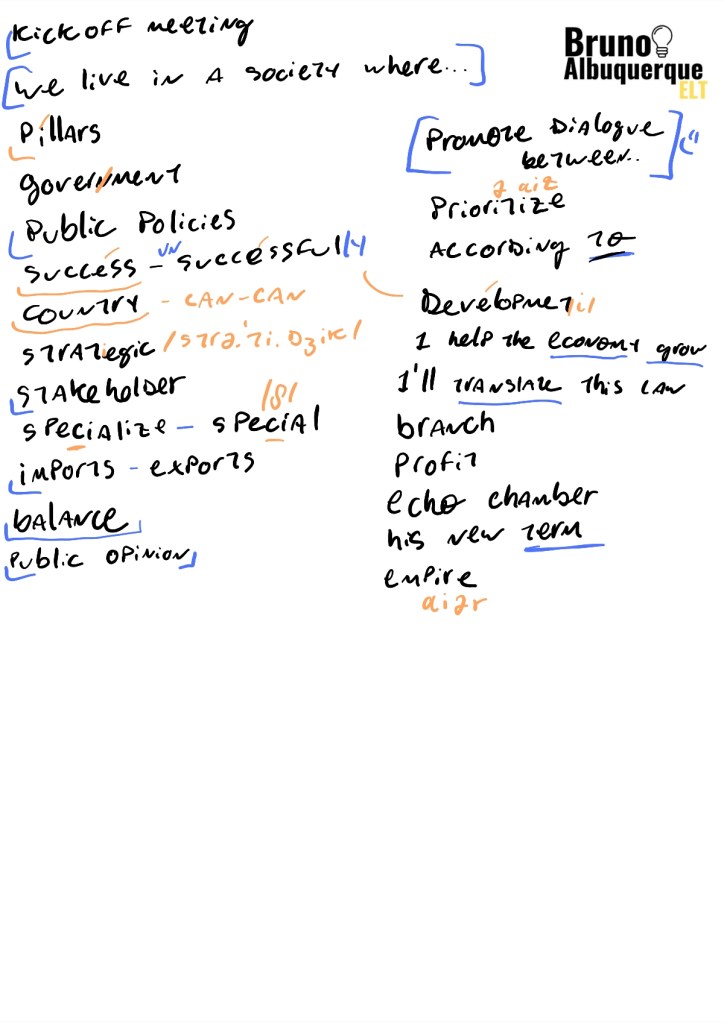 Kick off meeting
We live in a society where...
Pillars
government
Public Policies
success - UN successfully
country - CAN-CAN
strategic /strə.ˈti.dʒik/
stakeholder
/ʃ/
specialize - special
imports - exports
balance
public opinion
Bruno
Albuquerque
ELT
Promote Dialogue
between..
Prioritize
According to
Development
I help the economy grow
I'll translate this law
branch
Profit
echo chamber
his new term
empire